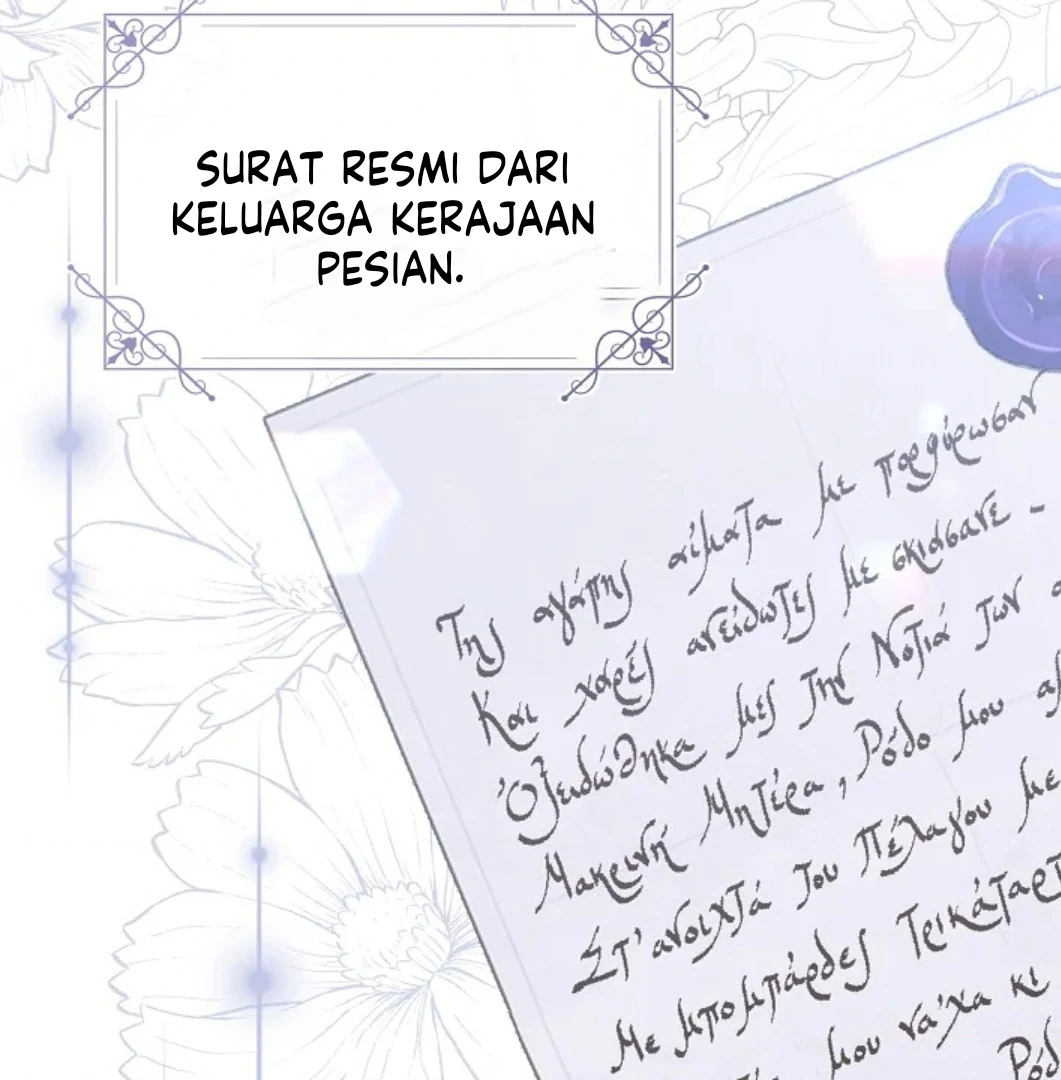 SURAT RESMI DARI
KELUARGA KERAJAAN
PESIAN.
Της αγάπης αίματα με πορφύρωσαν
Και χαρές ανείδωτες με σκιάσανε -
Οξειδώθηκα μες την Νοτιά των
Μακρινή Μητέρα, Ρόδο μου
Στ' ανοιχτά του Πέλαγου με
Με μπομπάρδες Τρικάταρτ
μου να'χα κι
Ρόδ